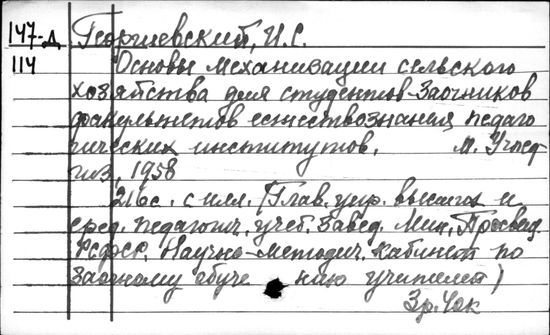 147-д Георгиевский, И.С.
114 Основы механизации сельского
хозяйства для студентов-заочников
факультетов естествознания педаго
гических институтов. М. Учпед
гиз, 1958
216с. с илл. (Глав. упр. высших и
сред. педагогич. учеб. завед. Мин. Просвещ.
РСФСР. Научно-методич. кабинет по
заочному обуче нию учителей)